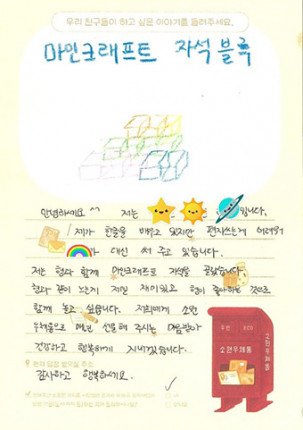 우리 친구들이 하고 싶은 이야기를 들려주세요.
마인크래프트 자석 블록
안녕하세요^^ 저는 입니다.
제가 한글을 배우고 있지만 편지쓰는게 어려워
가 대신 써 주고 있습니다.
저는 형과 함께 마인크래프트로 자석을
형과 같이 노는게 제일 재미있고 형이 좋아하는 것으로
함께 놀고 싶습니다. 저희에게 소원
우체통으로 매년 선물해 주시는 마음만큼
건강하고 행복하게 지내겠습니다.
감사하고 행복하세요.
소원우체통
소원우체통